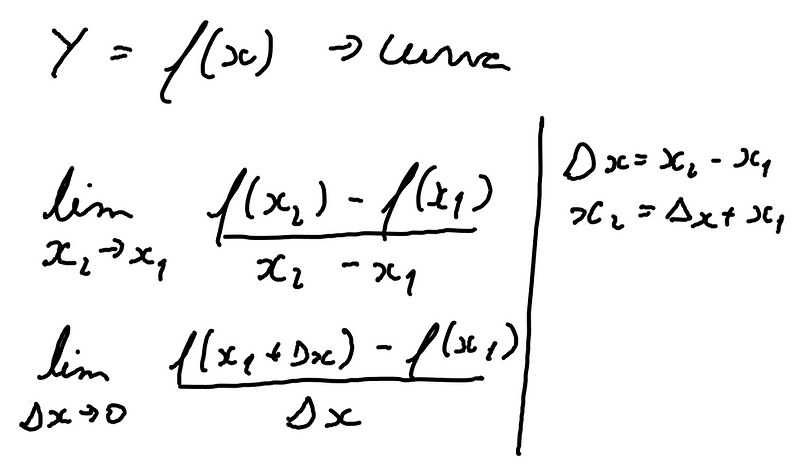 Y = f(x) → curva
lim x₂→x₁ f(x₂) - f(x₁) / x₂ - x₁
lim Δx→0 f(x₁ + Δx) - f(x₁) / Δx
Δx = x₂ - x₁
x₂ = Δx + x₁